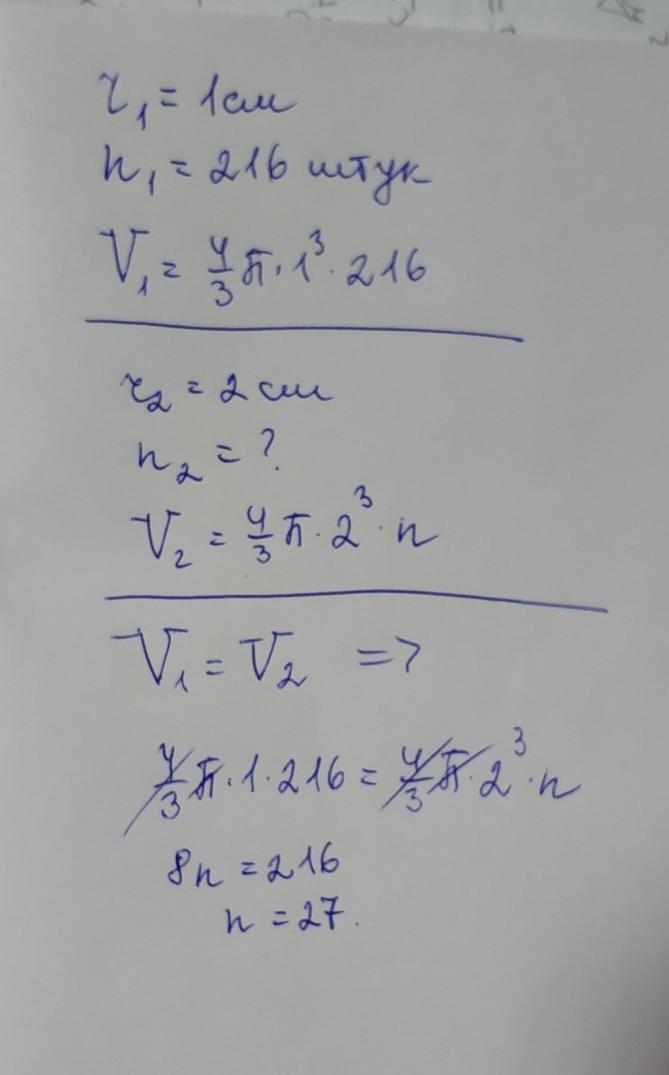 r₁ = 1 см
n₁ = 216 штук
V₁ = 4/3 π · 1³ · 216
r₂ = 2 см
n₂ = ?
V₂ = 4/3 π · 2³ · n
V₁ = V₂ =>
4/3 π · 1 · 216 = 4/3 π · 2³ · n
8n = 216
n = 27.